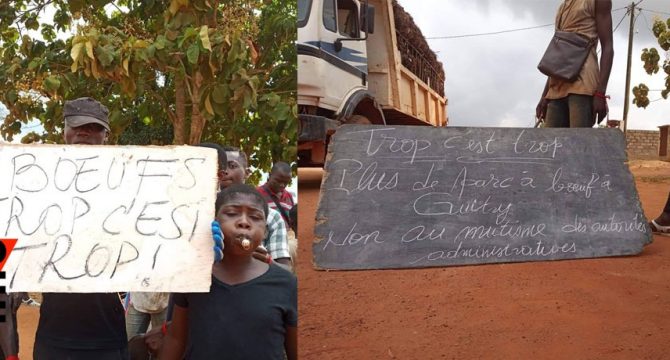 BOEUFS
TROP C'EST
TROP !
Trop c'est trop
Plus de parc à bœuf à
Guitry
Non au mutisme des autorités
administratives